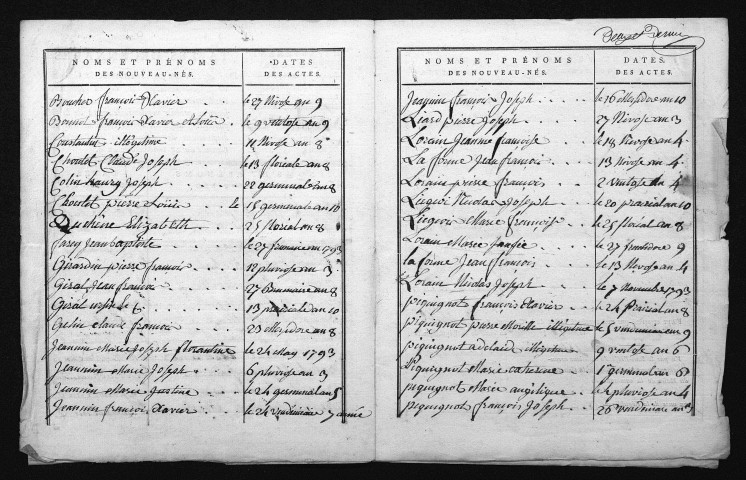 NOMS ET PRÉNOMS DES NOUVEAU-NÉS. DATES DES ACTES.
Bouchot françois Xavier le 27 Nivose an 9
françois Xavier le 9 ventose an 9
Constantin illegitime 11 Nivose an 8
Choulet Claude Joseph le 13 floreale an 8
Colin haury Joseph 22 germinal an 8
Choulet pierre Louis le 15 germinale an 10
Duchêne Elizabeth 25 floréal an 8
farcy jean baptiste le 27 frimaire 1793
Girardin pierre françois 12 pluviose an 3
Giral Jean francois 27 Brumaire an 8
Giral 13 prairiale an 10
Grelin claude francois 23 Messidore an 8
Jeannin Marie Joseph florantine le 24 May 1793
Jeannin Marie Joseph 6 pluviose an 3
Jeannin Marie Justine le 24 germinal an 5
Jeannin françois Xavier le 24 vendémiaire 7 année
NOMS ET PRÉNOMS DES NOUVEAU-NÉS. DATES. DES ACTES.
Jeannin françois Joseph le 16 Messidore an 10
Liard pierre Joseph 27 Nivose an 3
Lorain Jeanne francoise le 18 Nivose an 4
La forme Jean francois 13 Nivose an 4
Lorain pierre francois 2 ventose an 4
Ligier Nicolas Joseph le 20 prairial an 10
Ligier Marie françoise le 25 floréal an 8
Lorain Marie le 27 fructidore 9
la forme Jean françois le 13 Nivose an 4
Lorain Nicolas Joseph le 7 Novembre 1793
piquignot françois Xavier le 24 Prairial an 8
piquignot pierre illegitime le 5 vendemiaire an 9
piquignot adelaid illegitime 9 ventose an 6
Piquignot Marie catherine 1 germinal an 6
piquignot Marie angelique le 4 pluviose an 4
piquignot françois Joseph 26 vendémiaire an